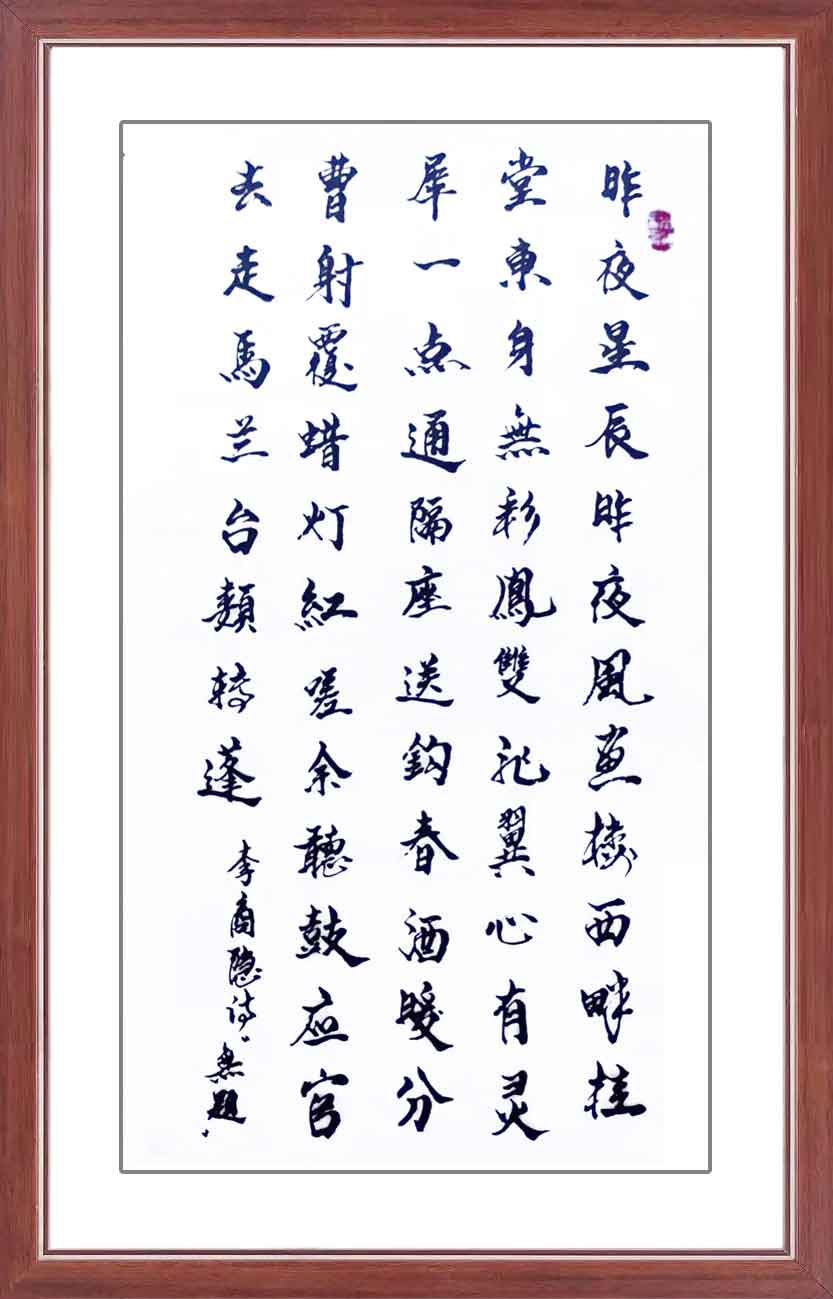 昨夜星辰昨夜風畫樓西畔桂
堂東身無彩鳳雙飛翼心有灵
犀一点通隔座送鈎春酒暖分
曹射覆蜡灯紅嗟余聽鼓应官
去走馬兰台類轉蓬
李商隐诗“無題”